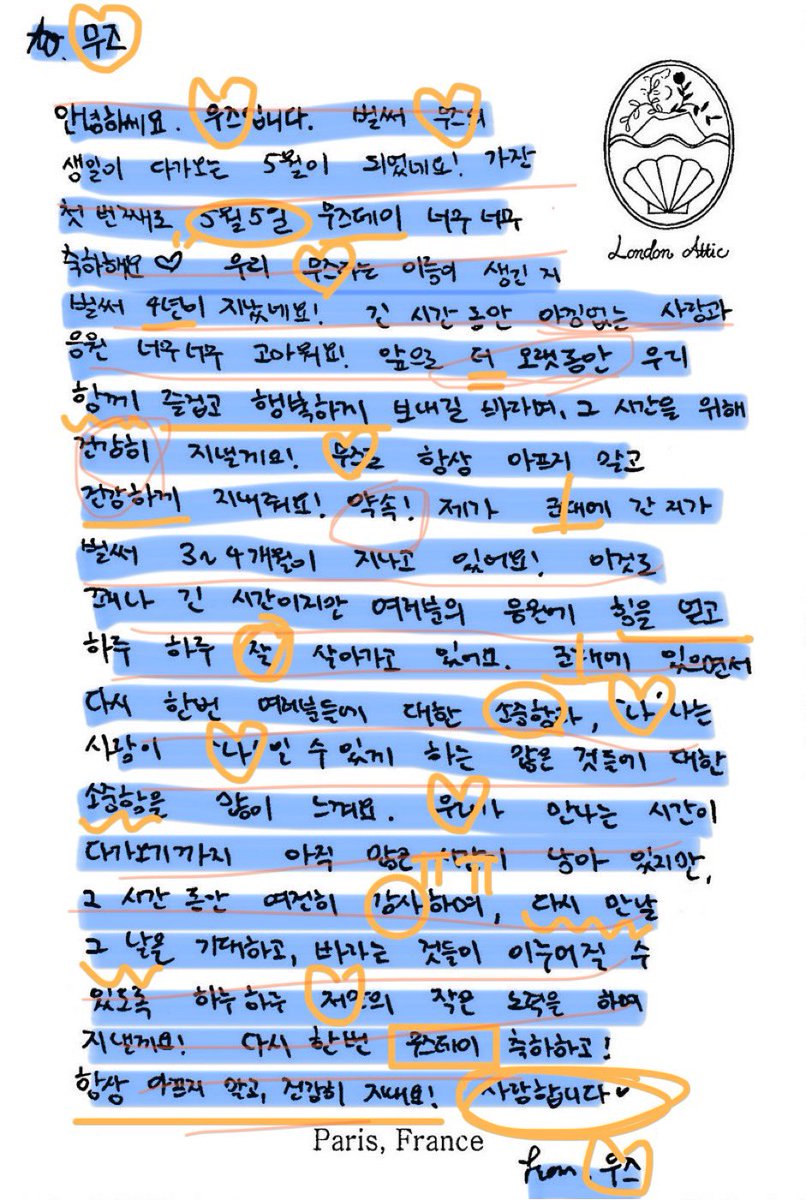 to. 무즈
안녕하세요. 우즈입니다. 벌써 무즈의
생일이 다가오는 5월이 되었네요! 가장
London Attic
첫 번째로, 5월 5일 무즈데이 너무 너무
축하해요♡ 우리 무즈라는 이름이 생긴 지
벌써 4년이 지났네요! 긴 시간 동안 아낌없는 사랑과
응원 너무너무 고마워요! 앞으로 더 오랫동안 우리
함께 즐겁고 행복하게 보내길 바라며, 그 시간을 위해
건강히 지낼게요! 무즈도 항상 아프지 말고
건강하게 지내줘요! 약속! 제가 군대에 간 지가
벌써 3~4개월이 지나고 있어요! 이것도
꽤나 긴 시간이지만 여러분의 응원에 힘을 얻고
하루 하루 잘 살아가고 있어요. 군대에 있으면서
다시 한번 여러분들에 대한 소중함과, '나'라는
사람이 '나'일 수 있게 하는 많은 것들에 대한
소중함을 많이 느껴요. 우리가 만나는 시간이
다가오기까지 아직 많은 시간이 남아 있지만,
그 시간 동안 여전히 감사하며, 다시 만날
그 날을 기대하고, 바라는 것들이 이루어질 수
있도록 하루 하루 저만의 작은 노력을 하며
지낼게요! 다시 한번 무즈데이 축하하고!
항상 아프지 말고, 건강히 지내요! 사랑합니다♥
Paris, France
from. 우즈